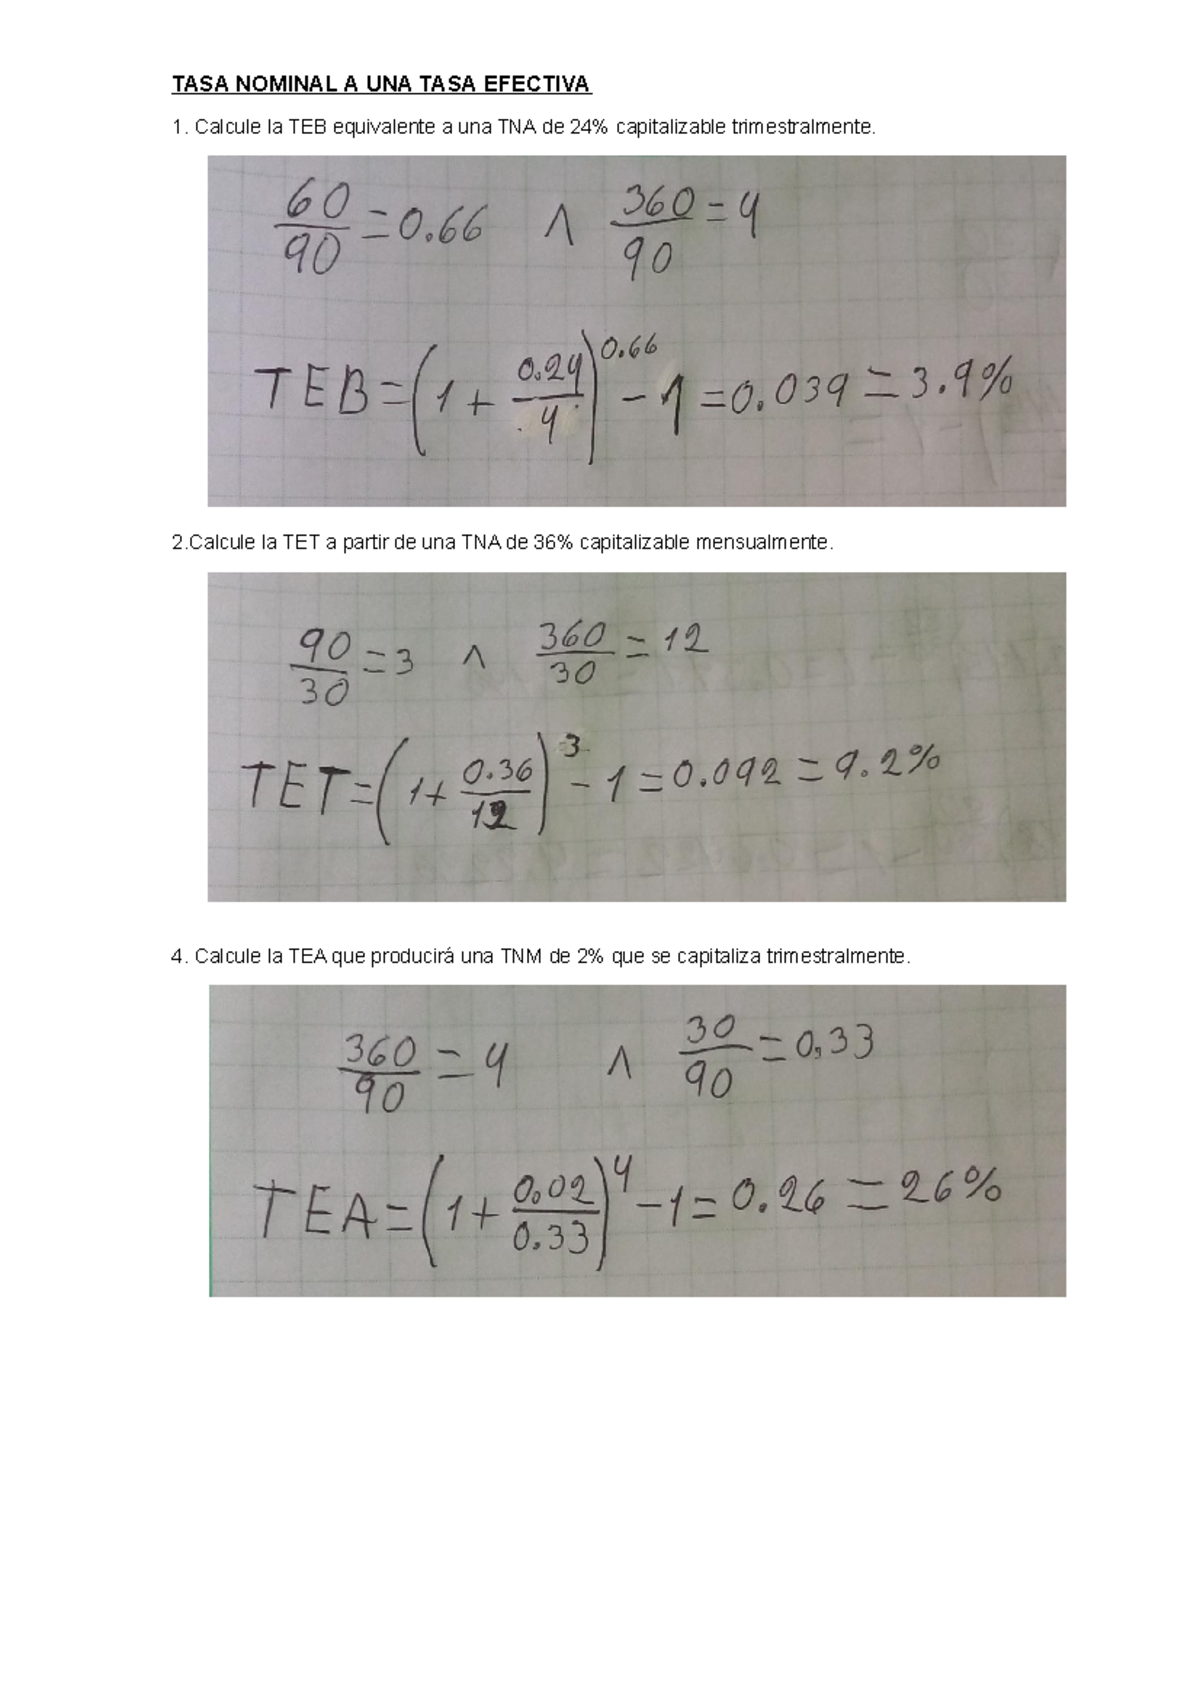 TASA NOMINAL A UNA TASA EFECTIVA
1. Calcule la TEB equivalente a una TNA de 24% capitalizable trimestralmente.
60/90 = 0.66 ∧ 360/90 = 4
TEB = (1 + 0.24/4)^0.66 - 1 = 0.039 = 3.9%
2.Calcule la TET a partir de una TNA de 36% capitalizable mensualmente.
90/30 = 3 ∧ 360/30 = 12
TET = (1 + 0.36/12)^3 - 1 = 0.092 = 9.2%
4. Calcule la TEA que producirá una TNM de 2% que se capitaliza trimestralmente.
360/90 = 4 ∧ 30/90 = 0,33
TEA = (1 + 0.02/0.33)^4 - 1 = 0.26 = 26%